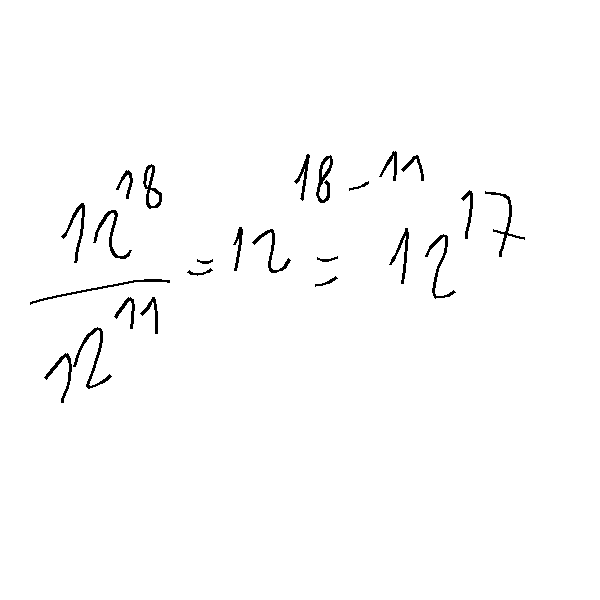 12^18/12^11 = 12^18-11 = 12^17